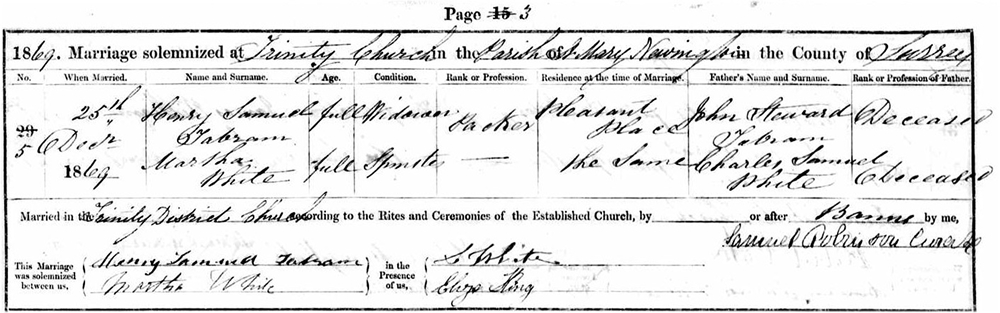 Page 15 3
1869. Marriage solemnized at Trinity Church in the Parish of St Mary Newington in the County of Surrey
No. When Married. Name and Surname. Age. Condition. Rank or Profession. Residence at the time of Marriage. Father's Name and Surname. Rank or Profession of Father.
25th Henry Samuel full Widower Packer Pleasant John Steward Deceased
29 5 Decr Tabram Place Tabram
1869 Martha full Spinster — the Same Charles Samuel Deceased
White White
Married in the Trinity District Church according to the Rites and Ceremonies of the Established Church, by or after Banns by me,
Samuel Robinson Curate
This Marriage was solemnized between us, Henry Samuel Tabram in the Presence of us, White
Martha White Eliza King